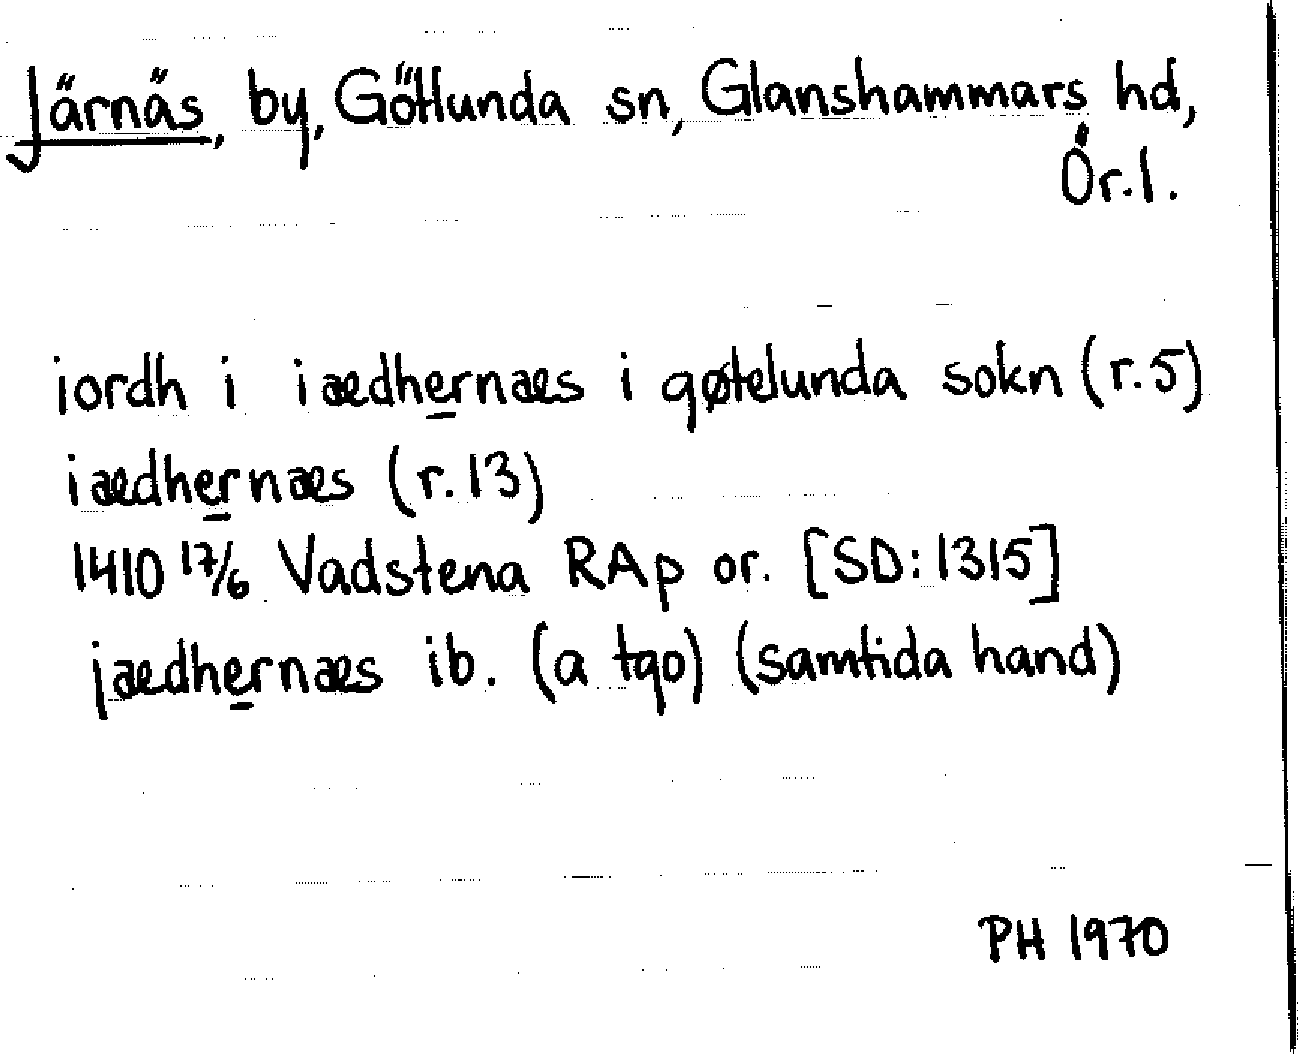 Järnäs, by, Götlunda sn, Glanshammars hd,
Ör.l.
iordh i iædhernæs i gøtelunda sokn (r.5)
iædhernæs (r.13)
1410 17/6 Vadstena RAp or. [SD:1315]
jædhernæs ib. (a tgo) (samtida hand)
PH 1970